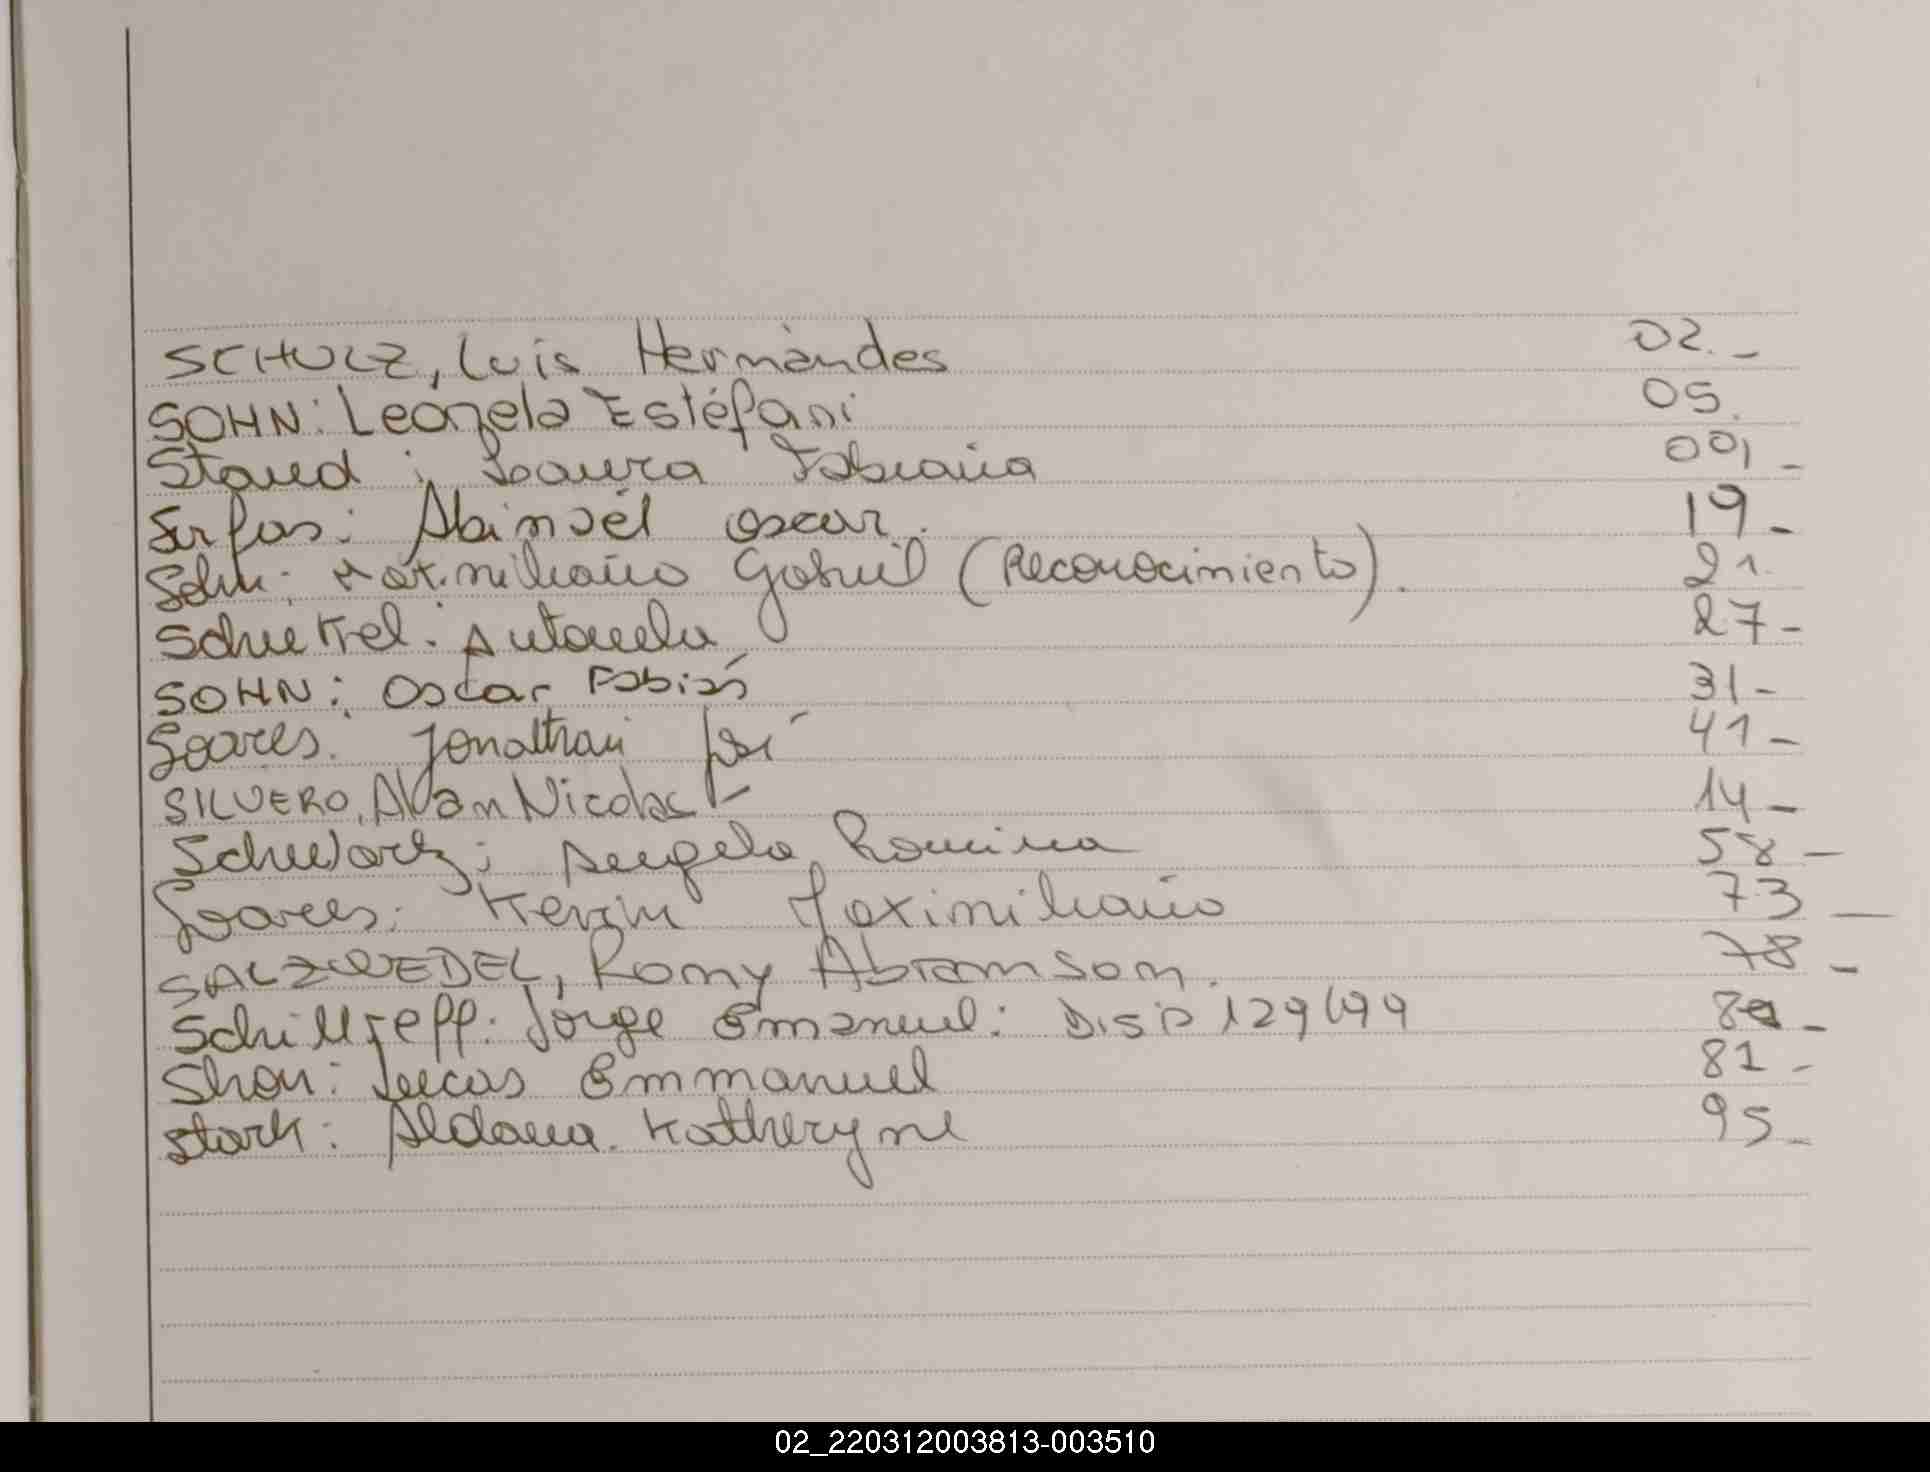 SCHULZ, Luis Hernàndes 02.-
SOHN: Leonela Estéfani 05.
Staud: Laura Fabiana 009 -
Serfas: Abimaél oscar. 19 -
Sohn: Maximiliano Gabriel (Reconocimiento). 21.
Schuekel: Antonela 27 -
SOHN: Oscar Fabián 31 -
Soares. Jonathan José 41 -
SILVERO, Alan Nicolas 14 -
Schwartz; Angela Romina 58 -
Soares: Kevin Maximiliano 73 -
SALZWEDEL, Romy Abramson. 78 -
Schillreff: Jorge Emanuel: DISP 129/99 80 -
Shon: Lucas Emmanuel 81 -
stark: Aldana. Katheryne 95 -
02_220312003813-003510